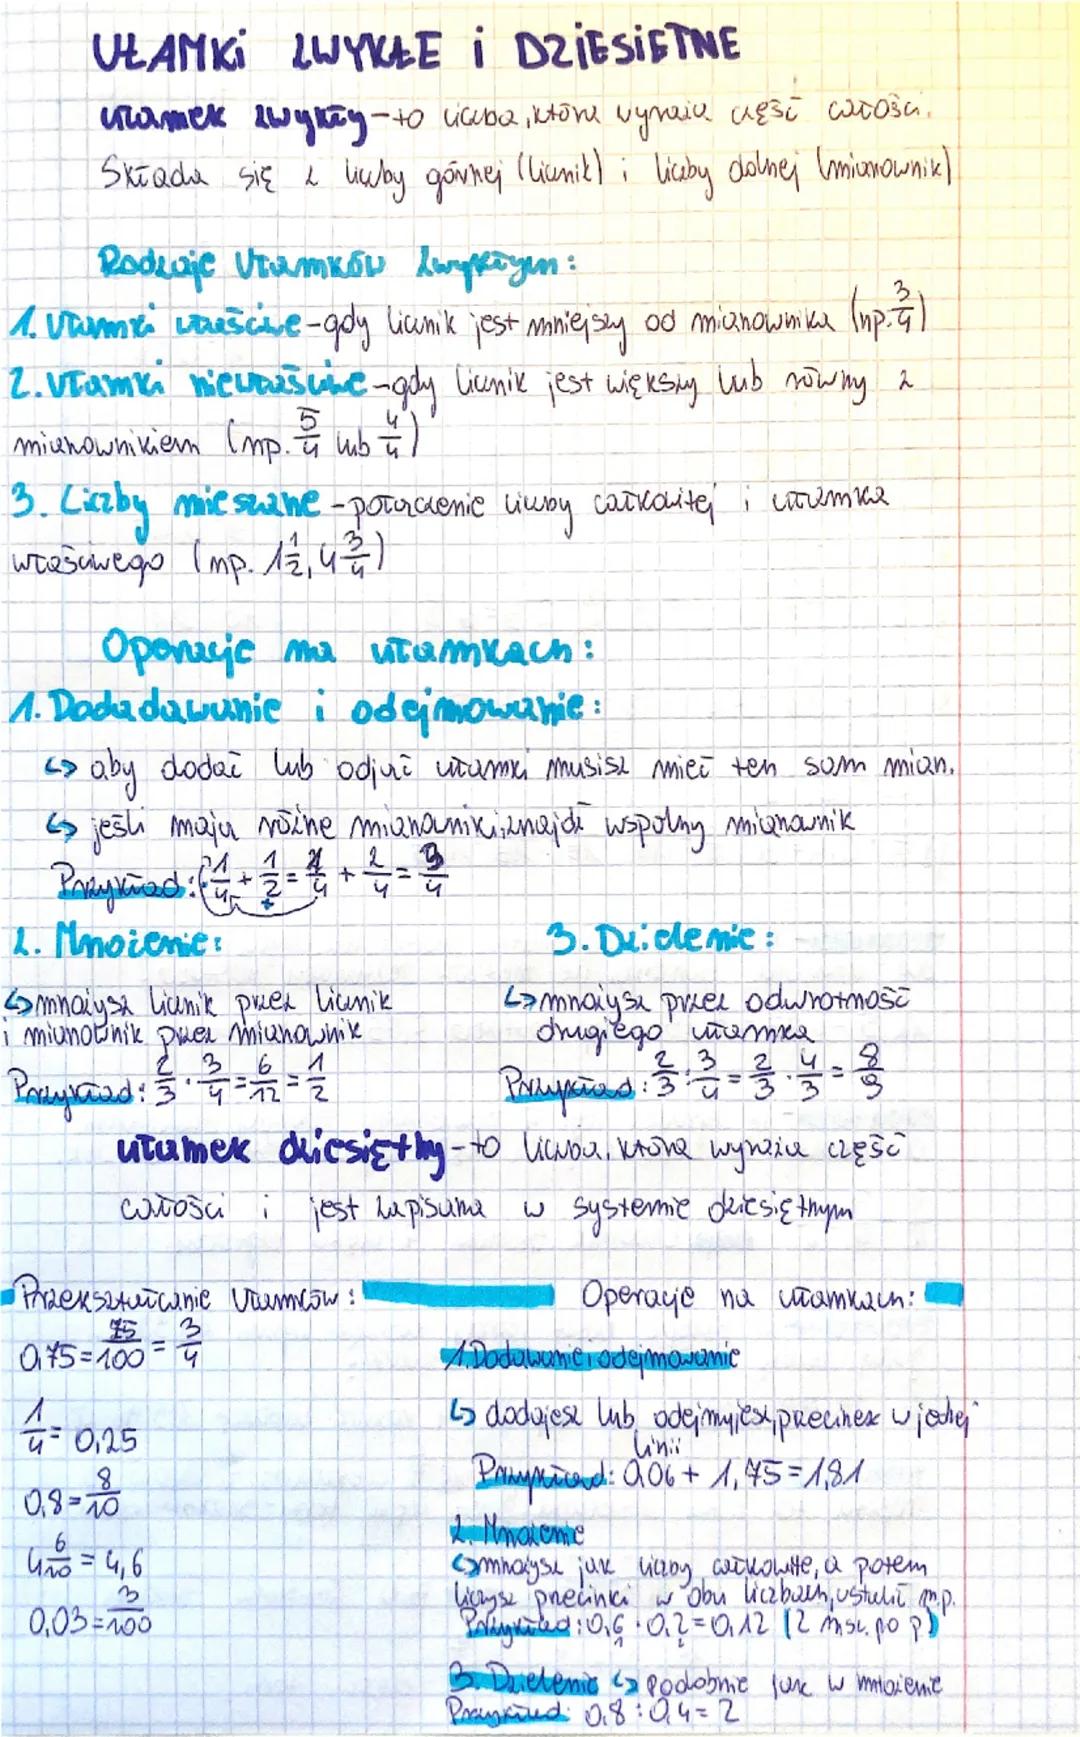 UŁAMKi ZWYKŁE i DZiESiĘTNE
ułamek zwykły - to liczba, która wyraża część całości.
Składa się z liczby górnej (licznik) i liczby dolnej (mianownik)
Rodzaje Ułamków zwykłych:
1. Ułamki właściwe - gdy licznik jest mniejszy od mianownika (np. 3/4)
2. Ułamki niewłaściwe - gdy licznik jest większy lub równy z
mianownikiem (np. 5/4 lub 4/4)
3. Liczby mieszane - połączenie liczby całkowitej i ułamka
właściwego (np. 1 1/2, 4 3/4)
Operacje na ułamkach:
1. Dodadawanie i odejmowanie:
↳ aby dodać lub odjąć ułamki musisz mieć ten sam mian.
↳ jeśli mają różne mianowniki, znajdź wspólny mianownik
Przykład: 1/4 + 1/2 = 1/4 + 2/4 = 3/4
2. Mnożenie:
↳ mnożysz licznik przez licznik
i mianownik przez mianownik
Przykład: 2/3 · 3/4 = 6/12 = 1/2
3. Dzielenie:
↳ mnożysz przez odwrotność
drugiego ułamka
Przykład: 2/3 : 3/4 = 2/3 · 4/3 = 8/9
ułamek dziesiętny - to liczba, która wyraża część
całości i jest zapisana w systemie dziesiętnym
Przekształcanie Ułamków:
0,75 = 75/100 = 3/4
1/4 = 0,25
0,8 = 8/10
4 6/10 = 4,6
0,03 = 3/100
Operacje na ułamkach:
1. Dodawanie i odejmowanie
↳ dodajesz lub odejmujesz, przecinek w jednej
linii
Przykład: 0,06 + 1,75 = 1,81
2. Mnożenie
↳ mnożysz jak liczby całkowite, a potem
liczysz przecinki w obu liczbach, ustalić m.p.
Przykład: 0,6 · 0,2 = 0,12 (2 msc. po p)
1 2
3. Dzielenie ↳ podobnie jak w mnożenie
Przykład: 0,8 : 0,4 = 2